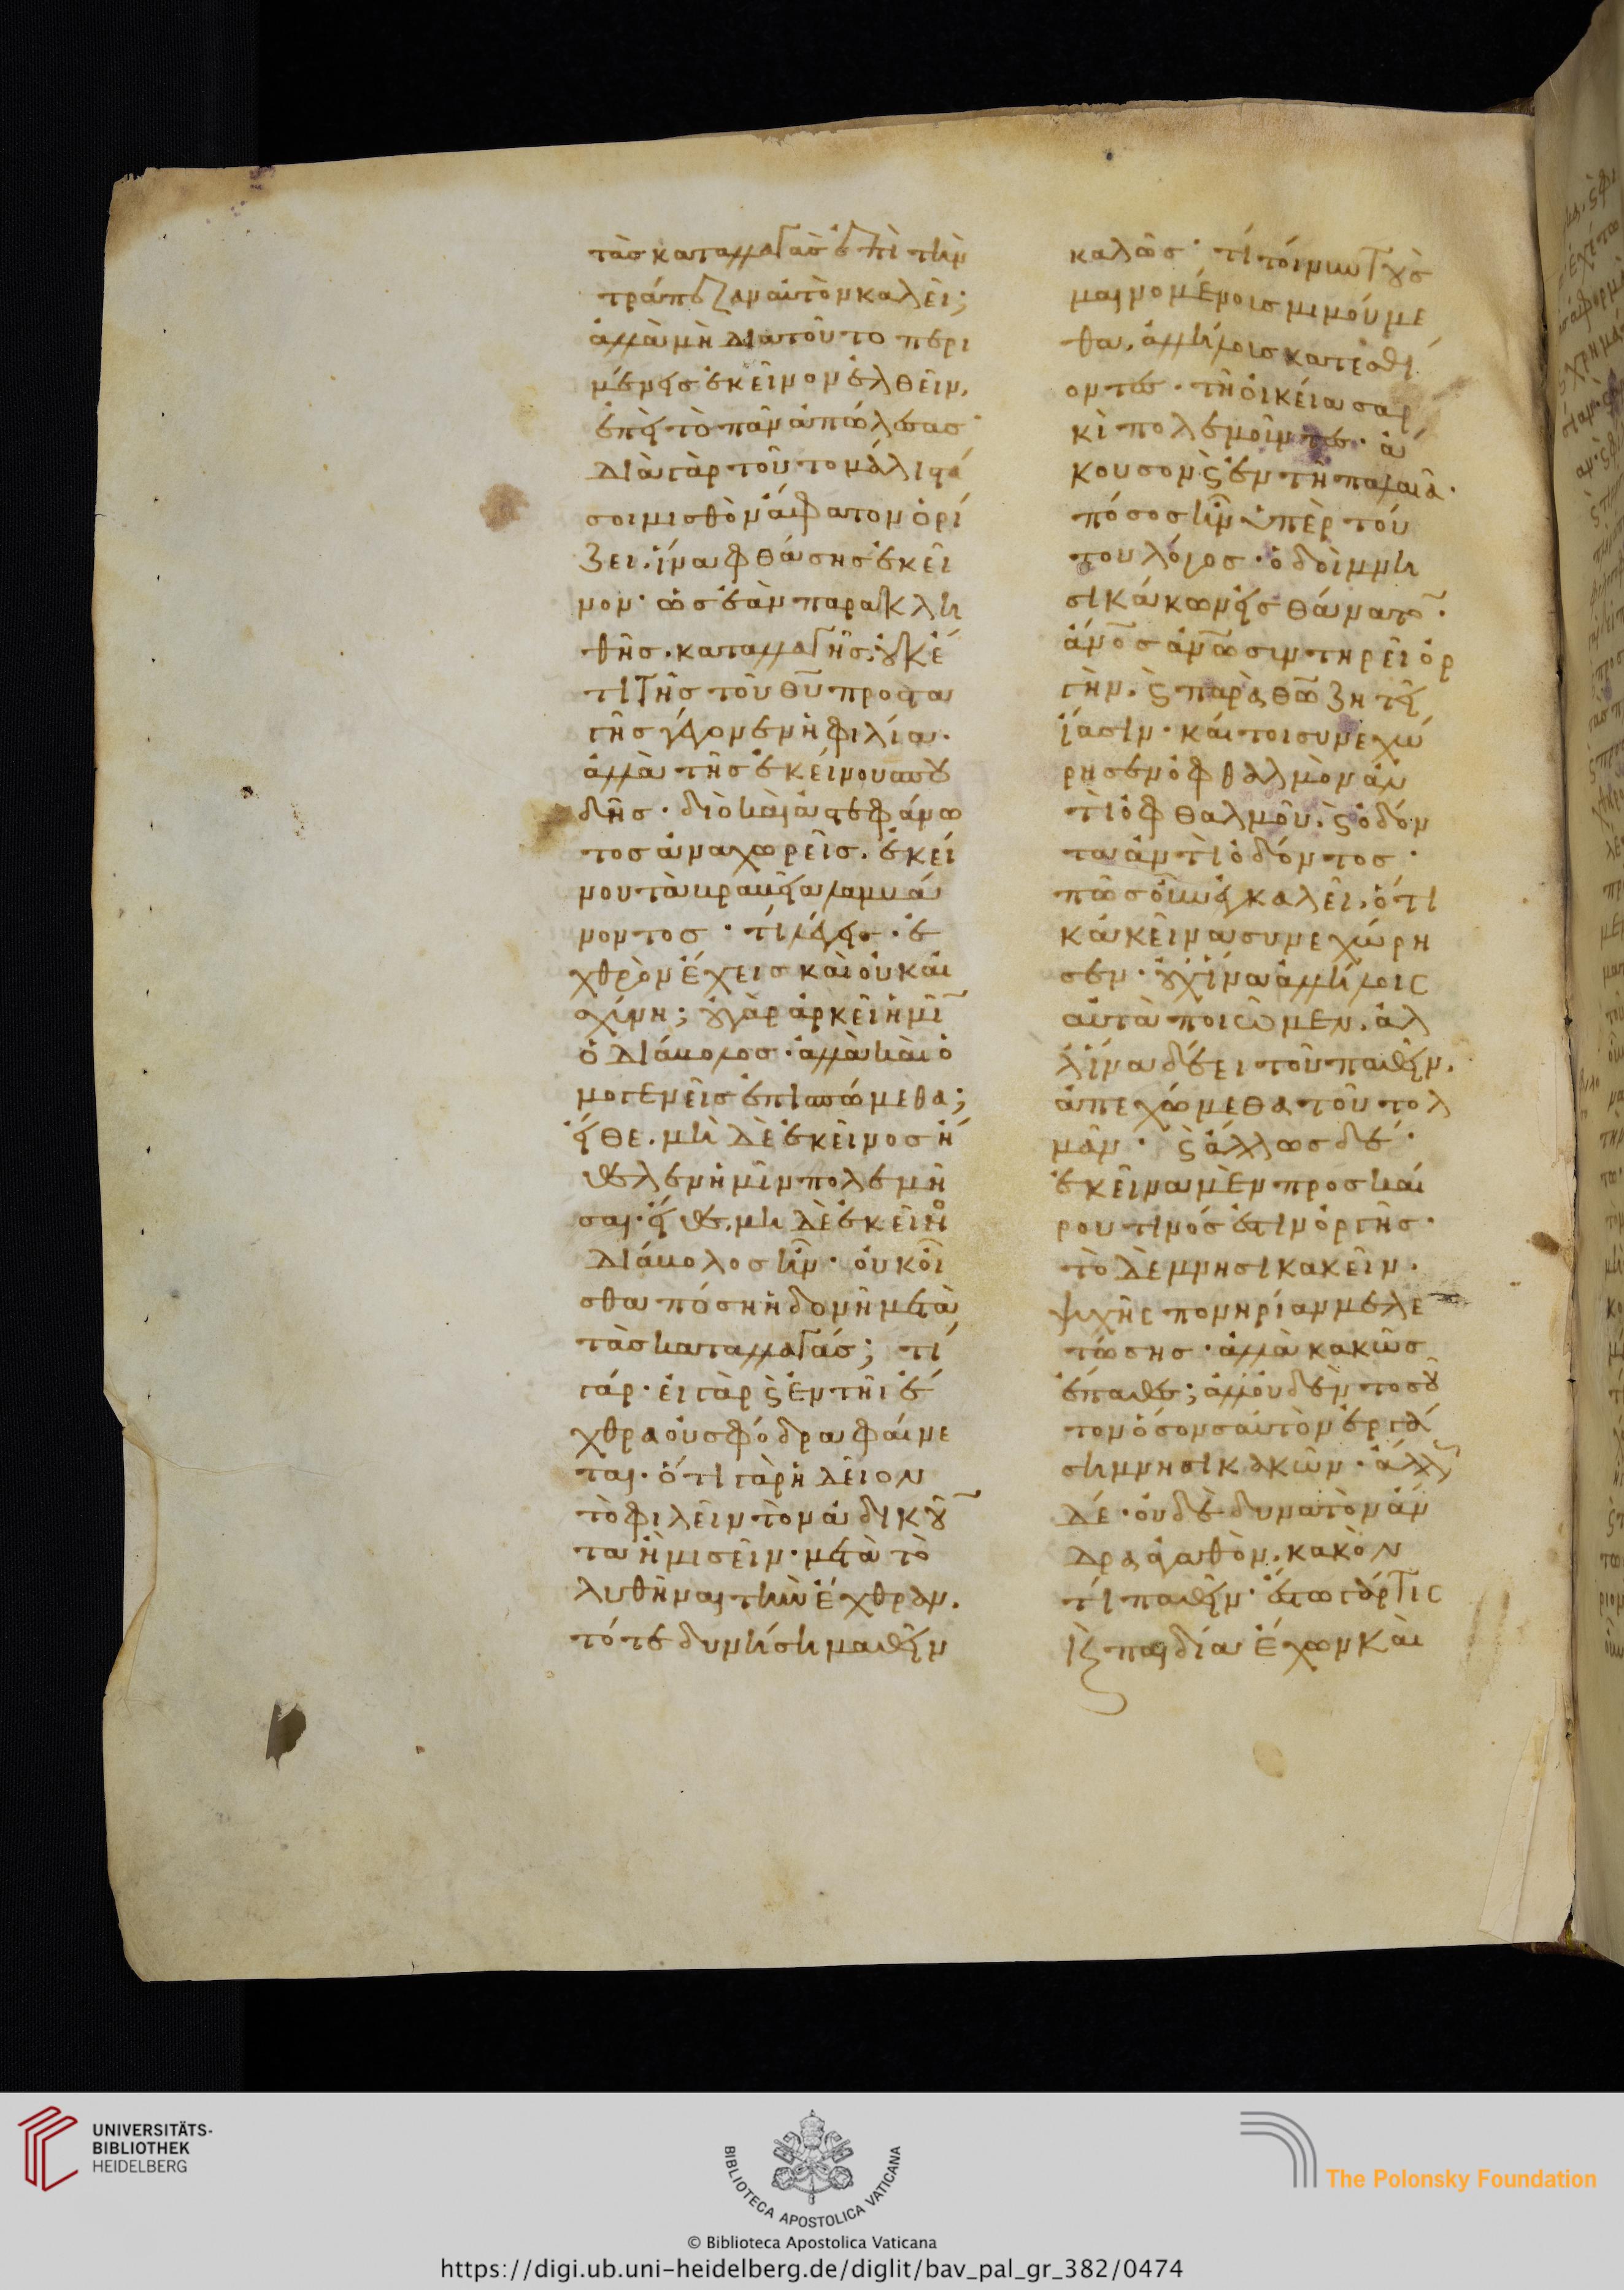 τὰσ καταλλαγὰσ ἐπὶ τὴν
τράπεζαν αὐτὸν καλεῖ;
ἀλλὰ μὴ διατοῦτο περι
μένησ ἐκεῖνον ἐλθεῖν.
ἐπεὶ τὸ πᾶν ἀπώλεσασ·
διὰ γὰρ τοῦτο μάλιστά
σοι μισθὸν ἄφατον ὁρί
ζει. ἵνα φθάσησ ἐκεῖ
νον· ὡσ ἐὰν παρακλη
θῆσ. καταλλαγῆσ· οὐκέ
τι τῆσ τοῦ θυ προστα
γῆσ γέγονεν ἡ φιλία.
ἀλλὰ τῆσ ἐκείνου σπου
δῆσ· διὸ καὶ ἀστεφάνω
τοσ ἀναχωρεῖσ. ἐκεί
νου τὰ βραβεῖα λαμβά
νοντοσ· τί λέγεισ· ἐ
χθρὸν ἔχεισ καὶ οὐκ αἰ
σχύνη; οὐ γὰρ ἀρκεῖ ἡμῖ
ὁ διάβολοσ· ἀλλὰ καὶ ὁ
μογενεῖσ ἐπισπώμεθα;
εἴθε. μὴ δὲ ἐκεῖνοσ ἤ
θελεν ἡμῖν πολεμῆ
σαι· εἴθε. μὴ δὲ ἐκεῖνο
διάβολοσ ἦν· οὐκ οἶ
σθα πόση ἡδονὴ μετὰ
τὰσ καταλλαγάσ; τί
γάρ· εἰ γὰρ καὶ ἐν τῆι ἔ
χθρα οὐ σφόδρα φαίνε
ται· ὅτι γὰρ ἥδειον
τὸ φιλεῖν τὸν ἀδικοῦ
τα ἢ μισεῖν· μετὰ τὸ
λυθῆναι τὴν ἔχθραν.
τότε δυνήση μαθεῖν
καλῶσ· τί τοίνυν τοὺσ
μαινομένουσ μιμούμε
θα. ἀλλήλουσ κατεσθί
οντεσ· τῆ οἰκεία σαρ
κὶ πολεμοῦντεσ· ἄ
κουσον καὶ ἐν τῆ παλαιᾶ·
πόσοσ ἦν ὑπὲρ τού
του λόγοσ· ὁδοὶ μνη
σικάκων εἰσ θάνατο·
ἄνοσ ἀνω συντηρεῖ ὀρ
γὴν. καὶ παρὰ θω ζητεῖ
ἴασιν· καίτοι συνεχώ
ρησεν ὀφθαλμὸν ἀν
τὶ ὀφθαλμοῦ. καὶ ὀδόν
τα ἀντὶ ὀδόντοσ·
πῶσ οὖν ἐγκαλεῖ. ὅτι
κἀκεῖνα συνεχώρη
σεν· οὐχ ἵνα ἀλλήλοις
αὐτὰ ποιῶμεν. ἀλ
λ ἵνα δέει τοῦ παθεῖν.
ἀπεχώμεθα τοῦ τολ
μᾶν· καὶ ἄλλωσ δέ·
ἐκεῖνα μὲν προσκαί
ρου τινόσ ἐστιν ὀργῆσ·
τὸ δὲ μνησικακεῖν.
ψυχῆς πονηρίαν μελε
τώσησ· ἀλλὰ κακῶσ
ἔπαθεσ; ἀλλ οὐδὲν τοσοῦ
τον ὅσον σαυτὸν ἐργά
ση μνησικακῶν· ἄλλ
δέ· οὐδὲ δυνατὸν ἄν
δρα ἀγαθὸν. κακὸν
τί παθεῖν· ἔστω γάρ τις
καὶ παιδία ἔχων καὶ
UNIVERSITÄTS-
BIBLIOTHEK
HEIDELBERG
BIBLIOTECA APOSTOLICA VATICANA
The Polonsky Foundation
© Biblioteca Apostolica Vaticana
https://digi.ub.uni-heidelberg.de/diglit/bav_pal_gr_382/0474